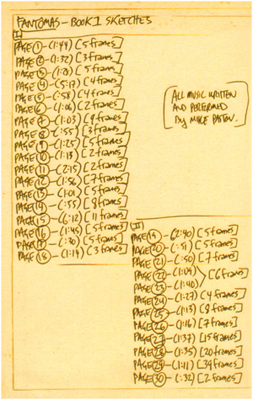 FANTÔMAS - BOOK 1 SKETCHES
I
PAGE 1 - (1:44) [5 frames]
PAGE 2 - (1:32) [3 frames]
PAGE 3 - [5 frames]
PAGE 4 - (5:17) [4 frames]
PAGE 5 - (:58) [4 frames]
PAGE 6 - (1:06) [2 frames]
PAGE 7 - (1:03) [9 frames]
PAGE 8 - (:55) [3 frames]
PAGE 9 - (1:25) [5 frames]
PAGE 10 - (1:13) [2 frames]
PAGE 11 - (2:15) [2 frames]
PAGE 12 - (1:56) [7 frames]
PAGE 13 - [5 frames]
PAGE 14 - (:55) [8 frames]
PAGE 15 - (6:12) [11 frames]
PAGE 16 - (1:45) [5 frames]
PAGE 17 - (:30) [5 frames]
PAGE 18 - (1:14) [3 frames]
ALL MUSIC WRITTEN
AND PERFORMED
by MIKE PATTON.
II
PAGE 19 - (2:40) [5 frames]
PAGE 20 - (:51) [5 frames]
PAGE 21 - (:50) [7 frames]
PAGE 22 - (1:04)
PAGE 23 - (1:40) [6 frames]
PAGE 24 - (1:27) [4 frames]
PAGE 25 - (1:13) [8 frames]
PAGE 26 - (1:16) [7 frames]
PAGE 27 - (1:37) [15 frames]
PAGE 28 - (1:35) [20 frames]
PAGE 29 - (1:41) [39 frames]
PAGE 30 - (:32) [2 frames]